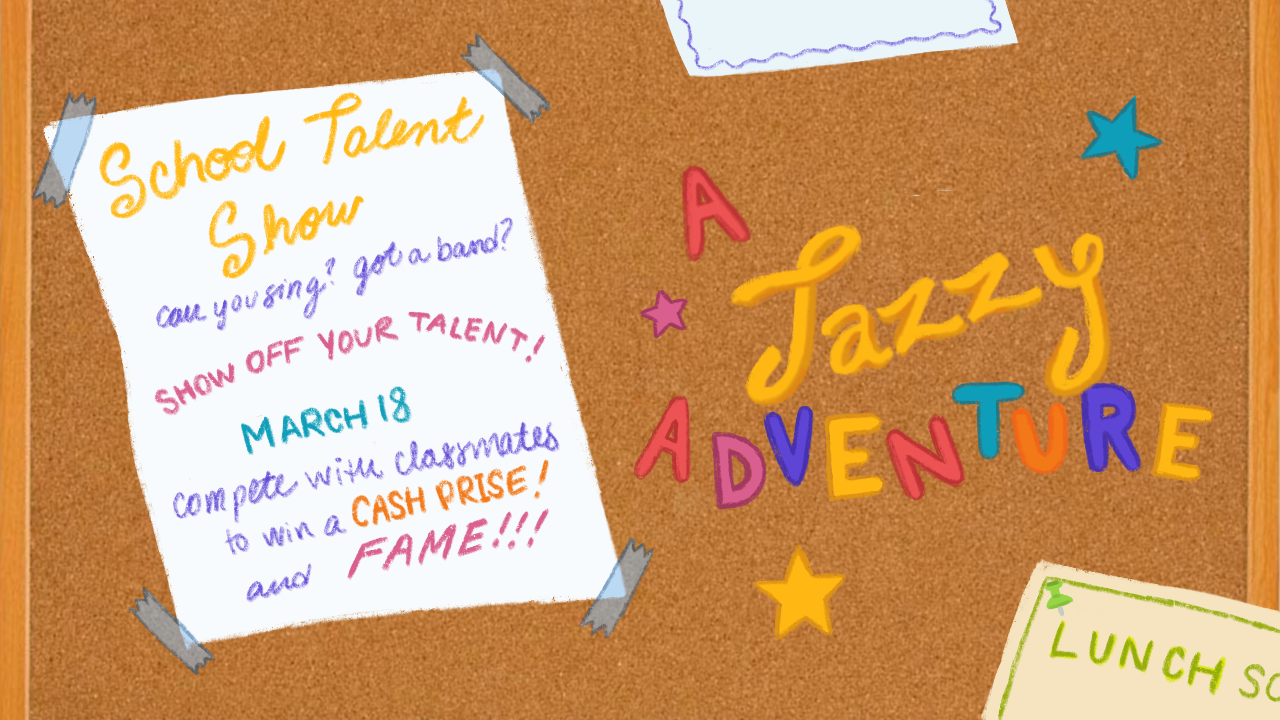 School Talent
Show
can you sing? got a band?
SHOW OFF YOUR TALENT!
MARCH 18
compete with classmates
to win a CASH PRISE!
and FAME!!!
A
Jazzy
ADVENTURE
LUNCH SC